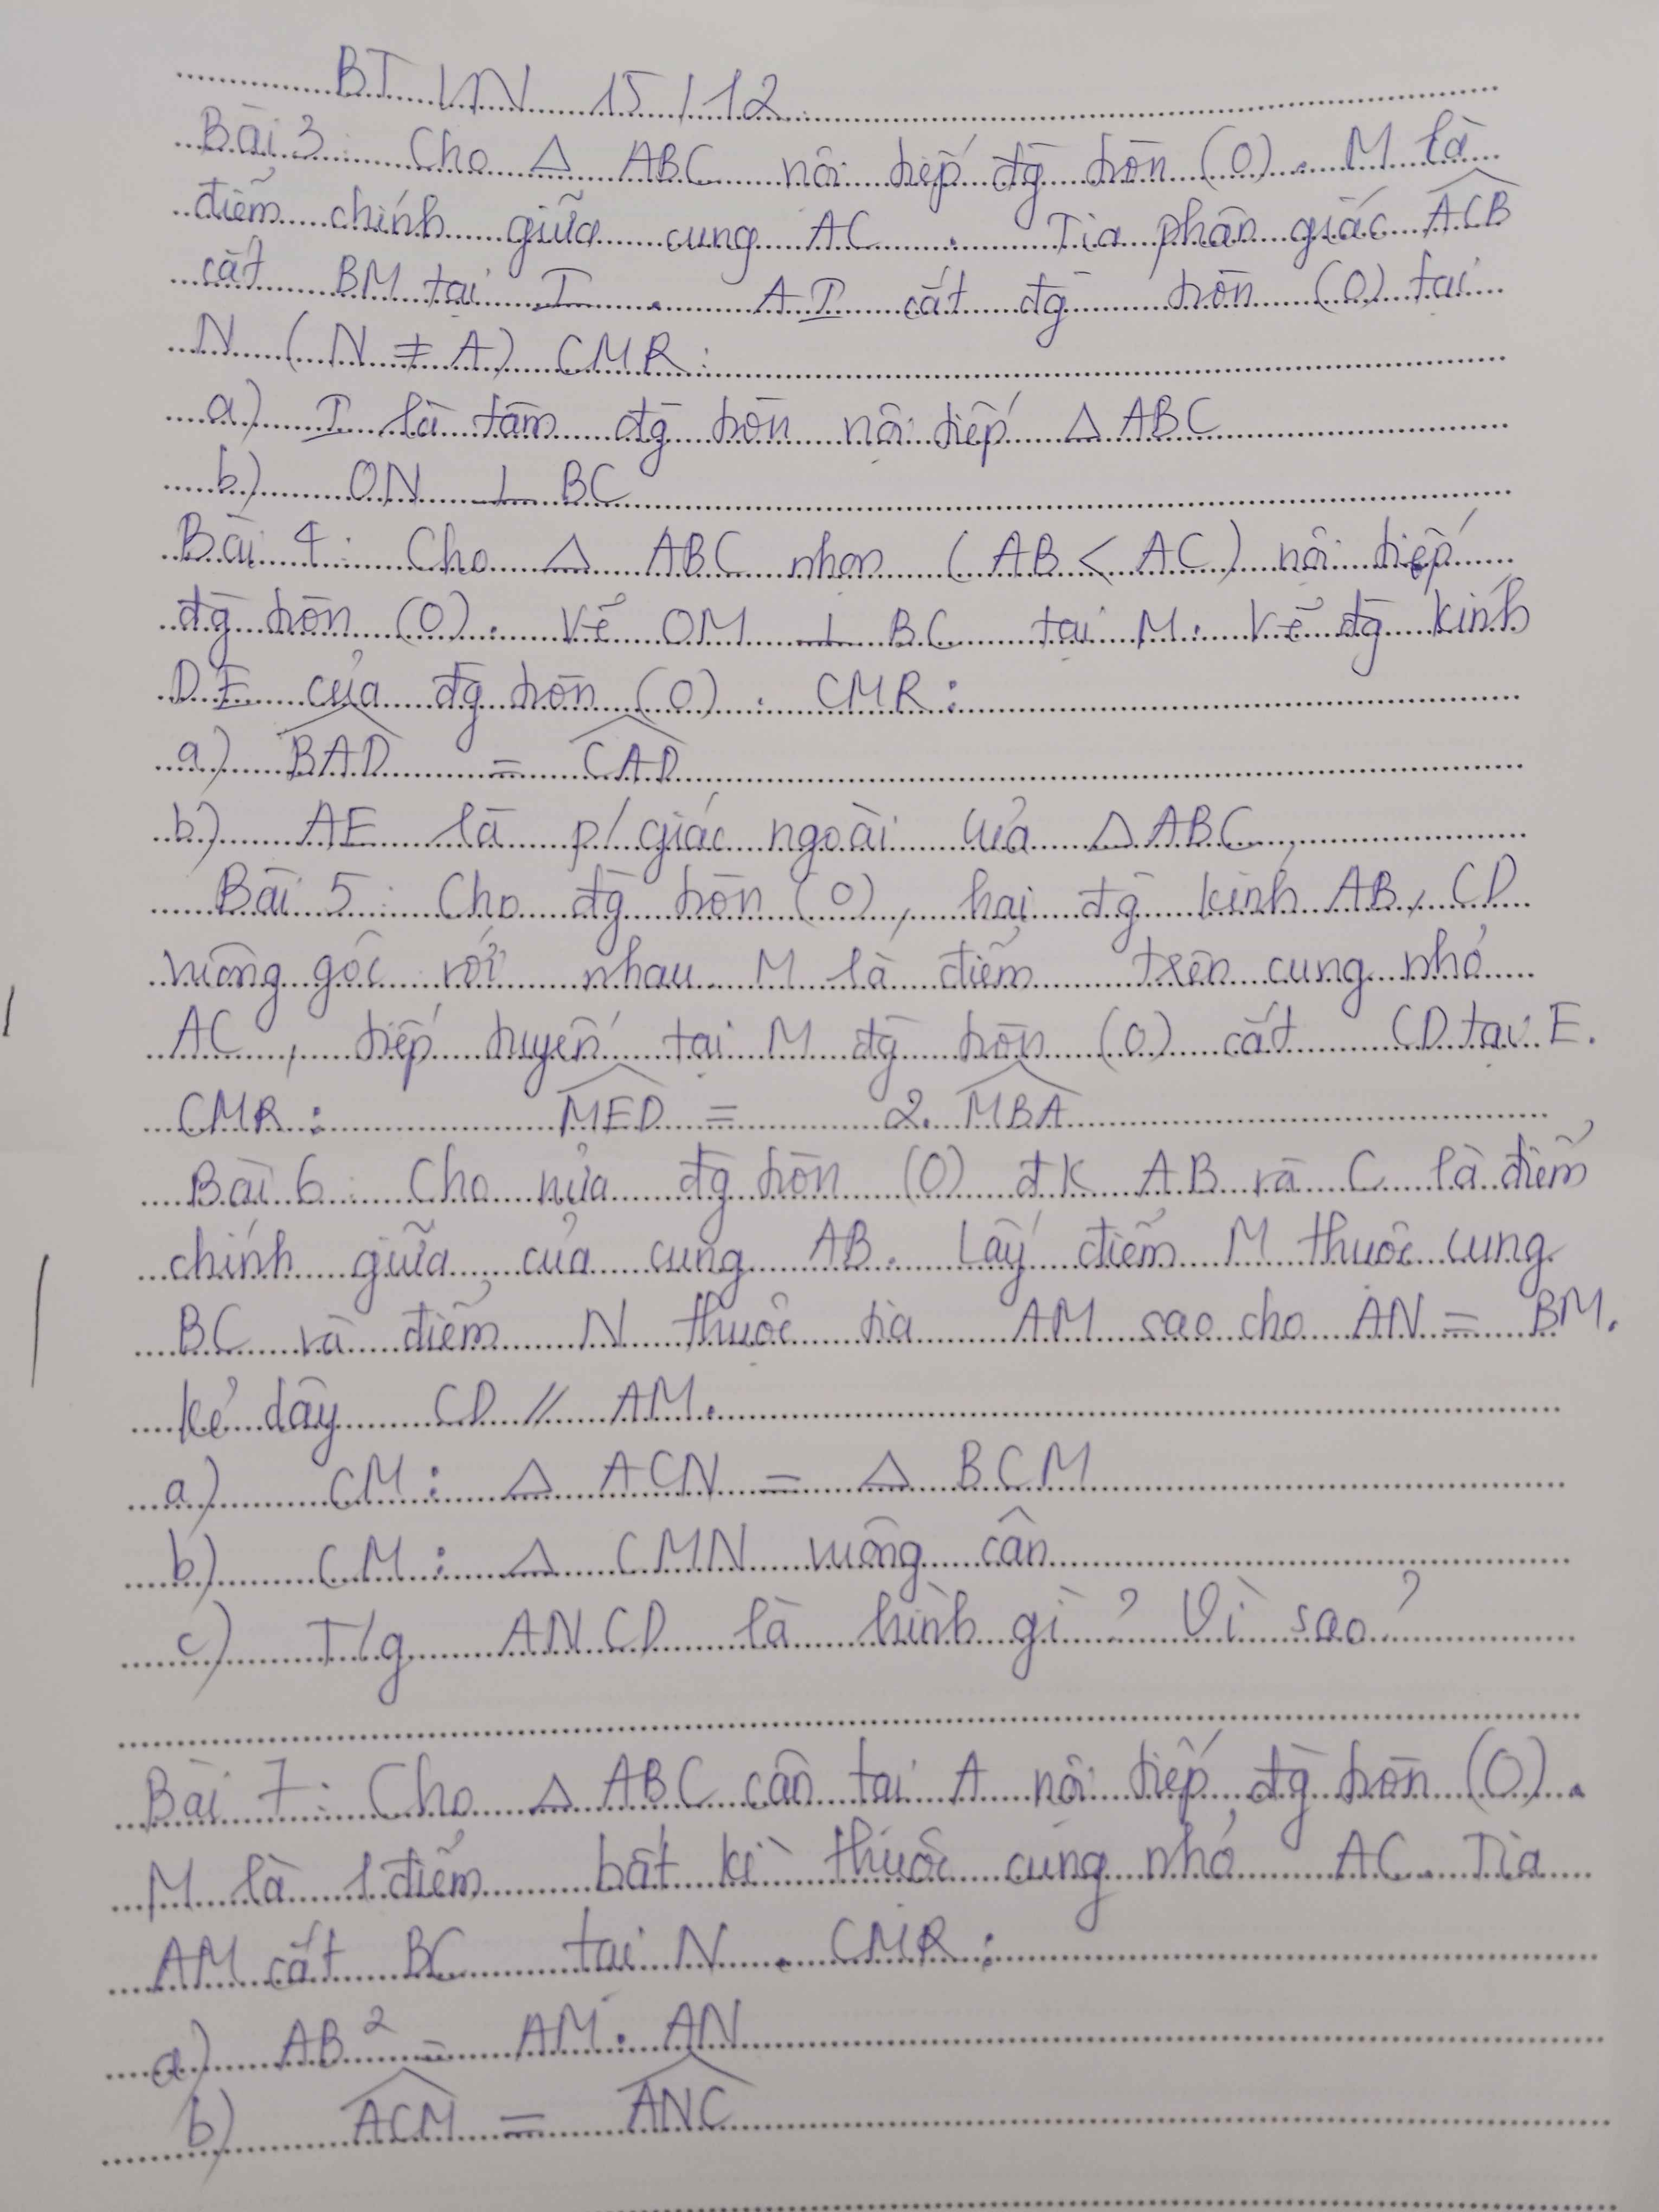 BT VN 15/12
Bài 3: Cho Δ ABC nội tiếp đg tròn (O). M là
điểm chính giữa cung AC. Tia phân giác ACB
cắt BM tại I. AI cắt đg tròn (O) tại
N (N ≠ A) CMR:
a) I là tâm đg tròn nội tiếp Δ ABC
b) ON ⊥ BC
Bài 4: Cho Δ ABC nhọn (AB < AC) nội tiếp
đg tròn (O). Vẽ OM ⊥ BC tại M. Vẽ đg kính
DE của đg tròn (O). CMR:
a) BAD = CAD
b) AE là p/giác ngoài của Δ ABC
Bài 5: Cho đg tròn (O), hai đg kính AB, CD
vuông góc với nhau M là điểm trên cung nhỏ
AC, tiếp tuyến tại M đg tròn (O) cắt CD tại E.
CMR: MED = 2. MBA
Bài 6: Cho nửa đg tròn (O) đk AB và C là điểm
chính giữa của cung AB. Lấy điểm M thuộc cung
BC và điểm N thuộc tia AM sao cho AN = BM.
Kẻ dây CD // AM.
a) CM: Δ ACN = Δ BCM
b) CM: Δ CMN vuông cân
c) T/g ANCD là hình gì? Vì sao?
Bài 7: Cho Δ ABC cân tại A nội tiếp đg tròn (O).
M là 1 điểm bất kì thuộc cung nhỏ AC. Tia
AM cắt BC tại N. CMR:
a) AB² = AM. AN
b) ACM = ANC